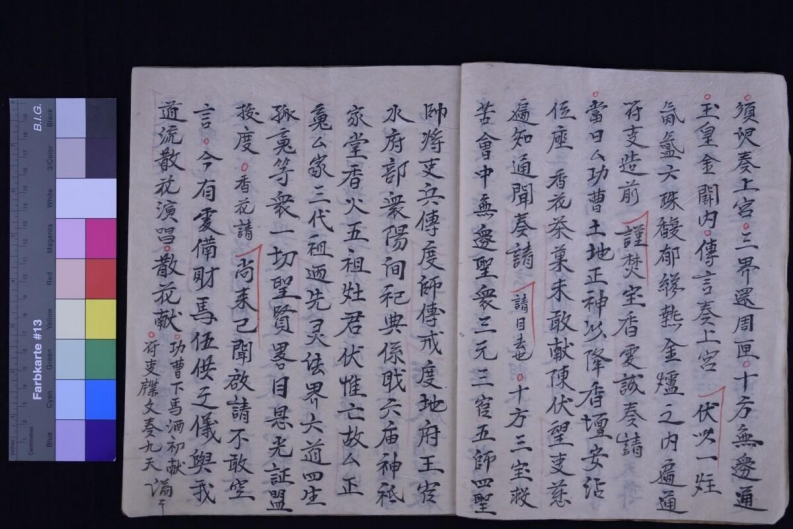 須沢奏上宮三界還周匝十方無邊通
玉皇金闕内傳言奏上宮 伏以一炷
氤氳六珠馥郁緩熱金爐之内遍通
符吏遙前 謹焚宝香虔誠奏請
當日厶功曹土地正神以降香壇安治
位座一香花茶菓未敢献陳伏望吏慈
遍知通聞奏請 請目去也 十方三宝救
苦會中無邊聖衆三元三官五師四聖
帥將吏兵傳度師傳戒度地府王官
水府部衆陽间祀典係戢六庙神祇
家堂香火五祖灶君伏惟亡故厶正
䰟厶家三代祖廼先灵法界六道四生
孤䰟等衆一切聖賢畧目恩光証盟
授度 香花請 尚来已聞啟請不敢空
言今有虔備財馬伍供之儀與我
道流散花演唱散花献
功曹下馬酒初献
符吏牒文奏九天
B.I.G.
Farbkarte #13
Centimetres
Blue
Cyan
Green
Yellow
Red
Magenta
White
3/Color
Black